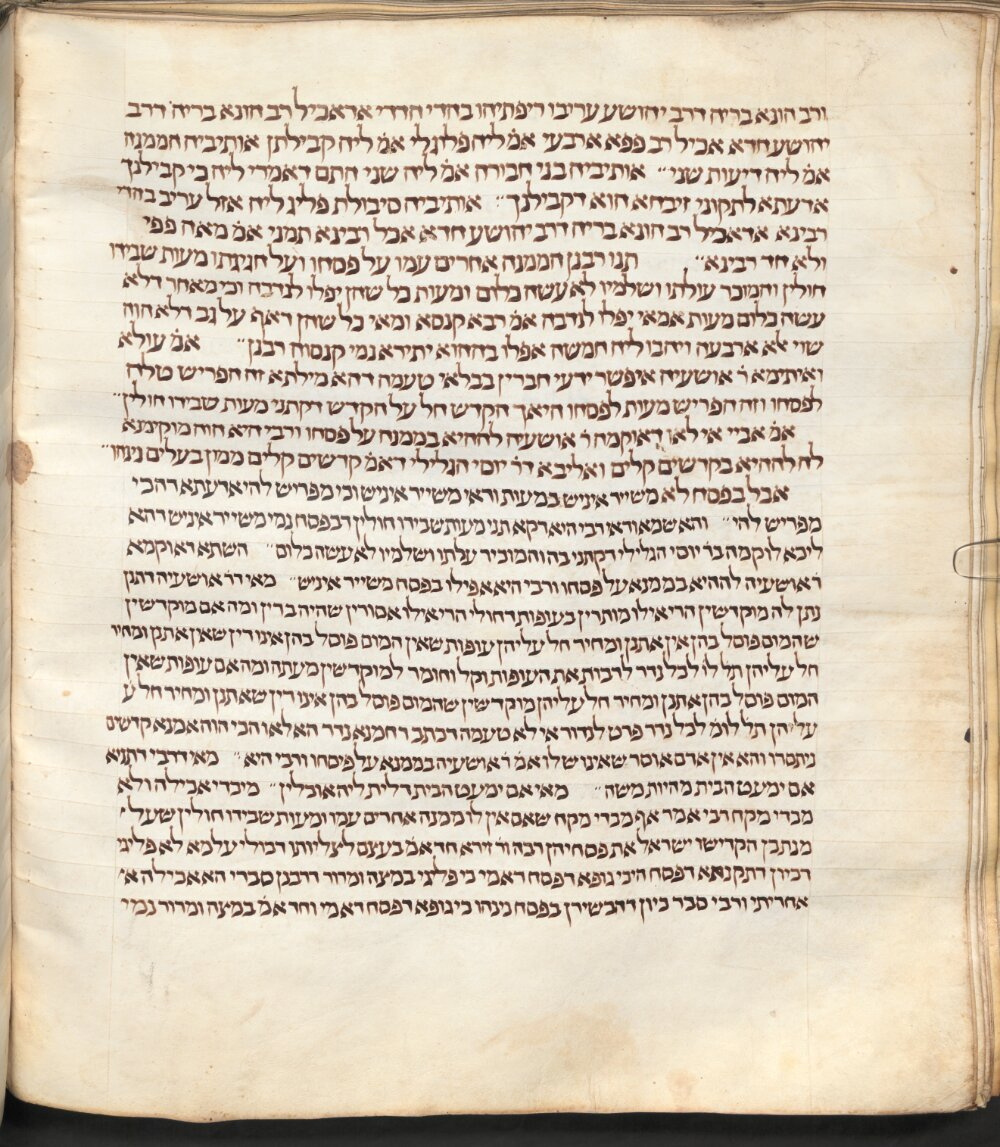 ורב הונא בריה דרב יהושע עריבו ריפתיהו בהדי הדדי אדאכיל רב הונא בריה דרב
יהושע חדא אכיל רב פפא ארבעי אמ׳ ליה פלוג לי אמ׳ ליה קבילתן אותיביה הממנה
אמ׳ ליה דיעות שני״ אותיביה בני חבורה אמ׳ ליה שני התם דאמרי ליה כי קבילנך
אדעתא לתקוני זיבחא הוא דקבילנך״ אותיביה סיבולת פליג ליה אזל עריב בהדי
רבינא אדאכיל רב הונא בריה דרב יהושע חדא אכל רבינא תמני אמ׳ מאה פפי
ולא חד רבינא״ תנו רבנן הממנה אחרים עמו על פסחו ועל חגיגתו מעות שבידו
חולין והמוכר עולתו ושלמיו לא עשה כלום ומעות כל שהן יפלו לנדבה וכי מאחר דלא
עשה כלום מעות אמאי יפלו לנדבה אמ׳ רבא קנסא ומאי כל שהן דאף על גב דלא הוה
שוי אלא ארבעה ויהבו ליה חמשה אפלו בההוא יתירא נמי קנסוה רבנן״ אמ׳ עולא
ואיתימא ר׳ אושעיה איפשר ידעי חברין בבלאי טעמה דהא מילתא זה הפריש טלה
לפסחו וזה הפריש מעות לפסחו היאך הקדש חל על הקדש דקתני מעות שבידו חולין״
אמ׳ אביי אי לאו דאוקמה ר׳ אושעיה לההיא בממנה על פסחו ורבי היא הוה מוקימנא
לה לההיא בקדשים קלים ואליבא דר׳ יוסי הגלילי דאמ׳ קדשים קלים ממון בעלים נינהו״
אבל בפסח לא משייר איניש במעות ודאי משייר איניש וכי מפריש להי אדעתא דהכי
מפריש להי״ והא שמא ודאי רבי היא דקא תני מעות שבידו חולין דבפסח נמי משייר איניש דהא
ליכא לוקמה בר׳ יוסי הגלילי דקתני בה והמוכיר עלתו ושלמיו לא עשה כלום״ השתא דאוקמא
ר׳ אושעיה לההיא בממנא על פסחו ורבי היא אפילו בפסח משייר איניש״ מאי דר׳ אושעיה דתנן
נתן לה מוקדשין הרי אילו מותרין בעופות דחולי הרי אילו אסורין שהיה בדין ומה אם מוקדשין
שהמום פוסל בהן אין אתנן ומחיר חל עליהן עופות שאין המום פוסל בהן אינו דין שאין אתנן ומחיר
חל עליהן תל לו׳ לכל נדר לרבות את העופות וקל וחומר למוקדשין מעתה ומה אם עופות שאין
המום פוסל בהן אתנן ומחיר חל עליהן מוקדשין שהמום פוסל בהן אינו דין שאתנן ומחיר חל ע
עליהן תל׳ לומ׳ לכל נדר פרט לנדור אי לא טעמה דכתב רחמנא נדר הא לאו הכי הוה אמנא קדשים
ניתסרו והא אין אדם אוסר שאינו שלו אמ׳ ר׳ אושעיה בממנא על פיסחו ורבי היא״ מאי דרבי דתניא
אם ימעט הבית מהיות משה״ מאי אם ימעט הבית דלית ליה אוכלין״ מיכדי אכילה ולא
מכדי מקח רבי אמר אף מכדי מקח שאם אין לו ממנה אחרים עמו ומעות שבידו חולין שעל
מנת כן הקדישו ישראל את פסחיהן רבה ור׳ זירא חד אמ׳ בעצם לצליותו דכולי עלמא לא פליגי
דכיון דתקנתא דפסח היכי גופא דפסח דאמי כי פליגי במצה ומרור דרבנן סברי הא אכילה א׳
אחריתי ורבי סבר כיון דהכשירן בפסח נינהו כי גופא דפסח דאמי וחד אמ׳ במצה ומרור נמי